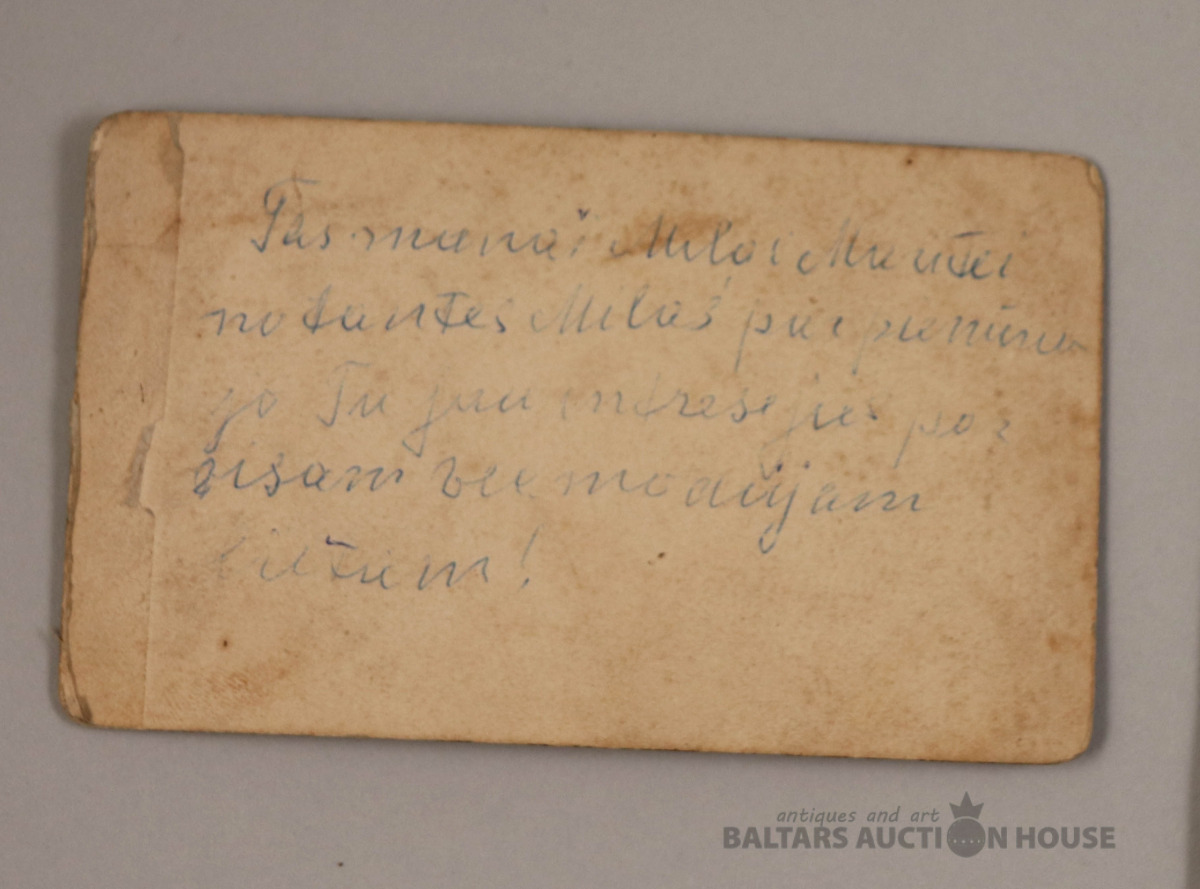 Tas manai Milai Muntei
no tantes Milas par piemiņu
jo Tu jau intresejies par
visam vec modijam
lietiem!
antiques and art
BALTARS AUCTION HOUSE